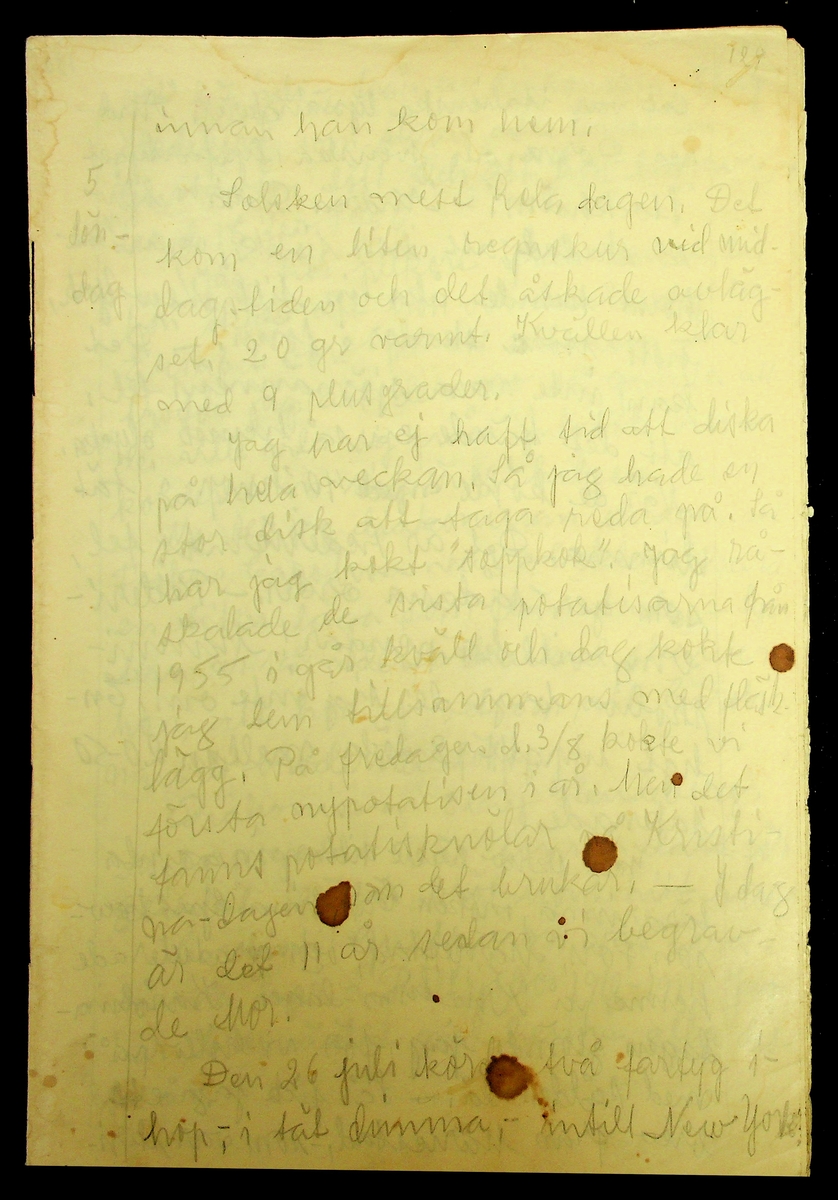 innan han kom hem.
5
Sön-
dag
Solsken mest hela dagen. Det
kom en liten regnskur vid mid-
dagstiden och det åskade avläg-
set, 20 gr varmt. Kvällen klar
med 9 plusgrader.
Jag har ej haft tid att diska
på hela veckan. Så jag hade en
stor disk att taga reda på. Så
har jag kokt "soppkok". Jag rå-
skalade de sista potatisarna från
1955 i går kväll och dag kokte
jag dem tillsammans med fläsk-
lägg. På fredagen d. 3/8 kokte vi
första nypotatisen i år. Men det
fanns potatisknölar på Kristi-
na-dagen som det brukar. — I dag
är det 11 år sedan vi begrav-
de Mor.
Den 26 juli körde två fartyg i-
hop,- i tät dimma,- intill New York.